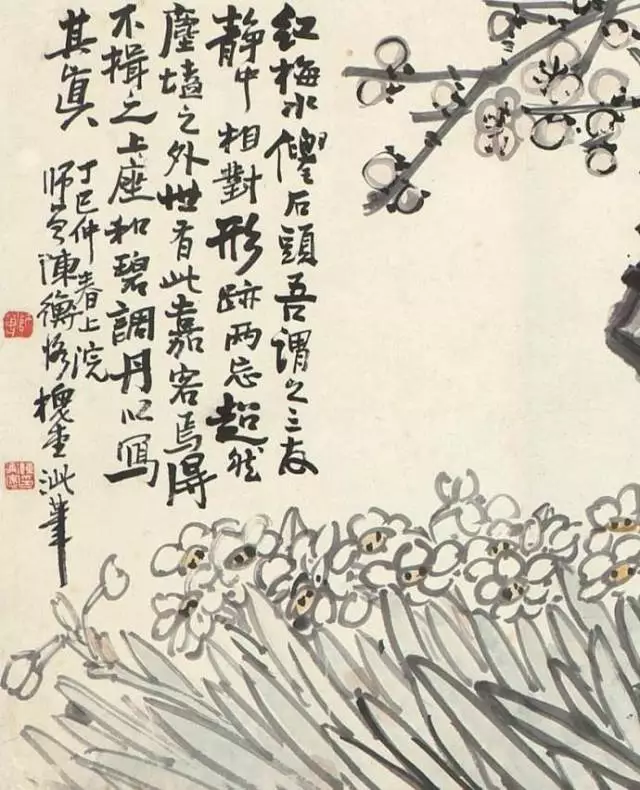 紅梅水僊石頭吾謂之三友
靜中相對形跡兩忘超然
塵壒之外世有此嘉客焉得
不揖之上座和碧調丹以寫
其真
丁巳仲春上浣
師曾陳衡恪槐堂泚筆